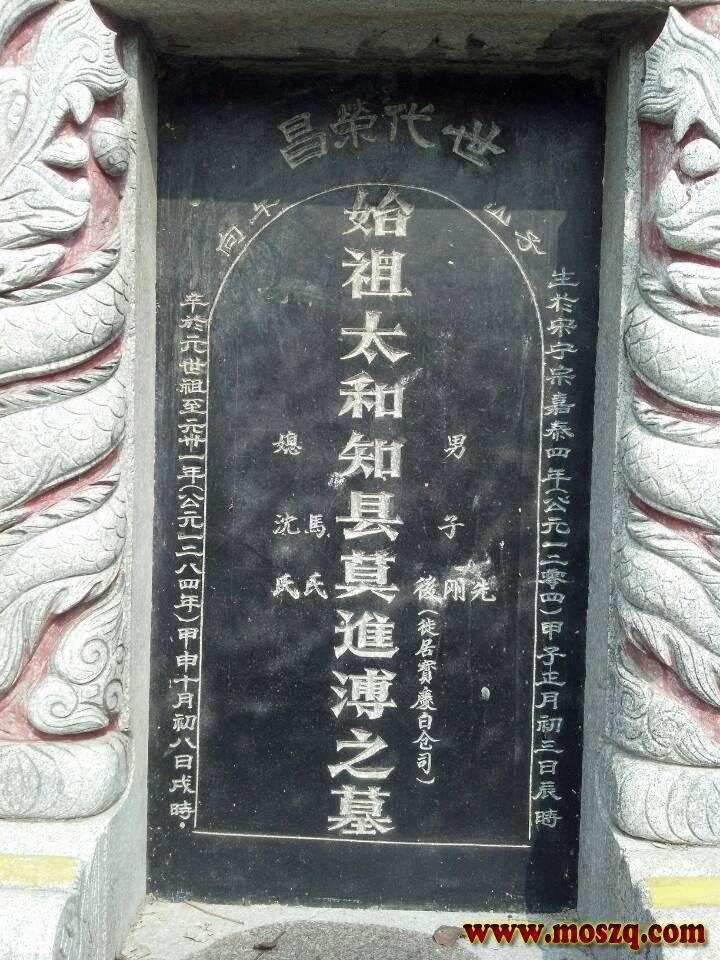 世代榮昌
子山
午向
生於宋宁宗嘉泰四年(公元一二零四)甲子正月初三日辰時
男子
先
剛
後(徙居寶慶白仓司)
始祖太和知县莫進溥之墓
媳
馬氏
沈氏
卒於元世祖至元卅一年(公元一二八四年)甲申十月初八日戌時.
www.moszq.com